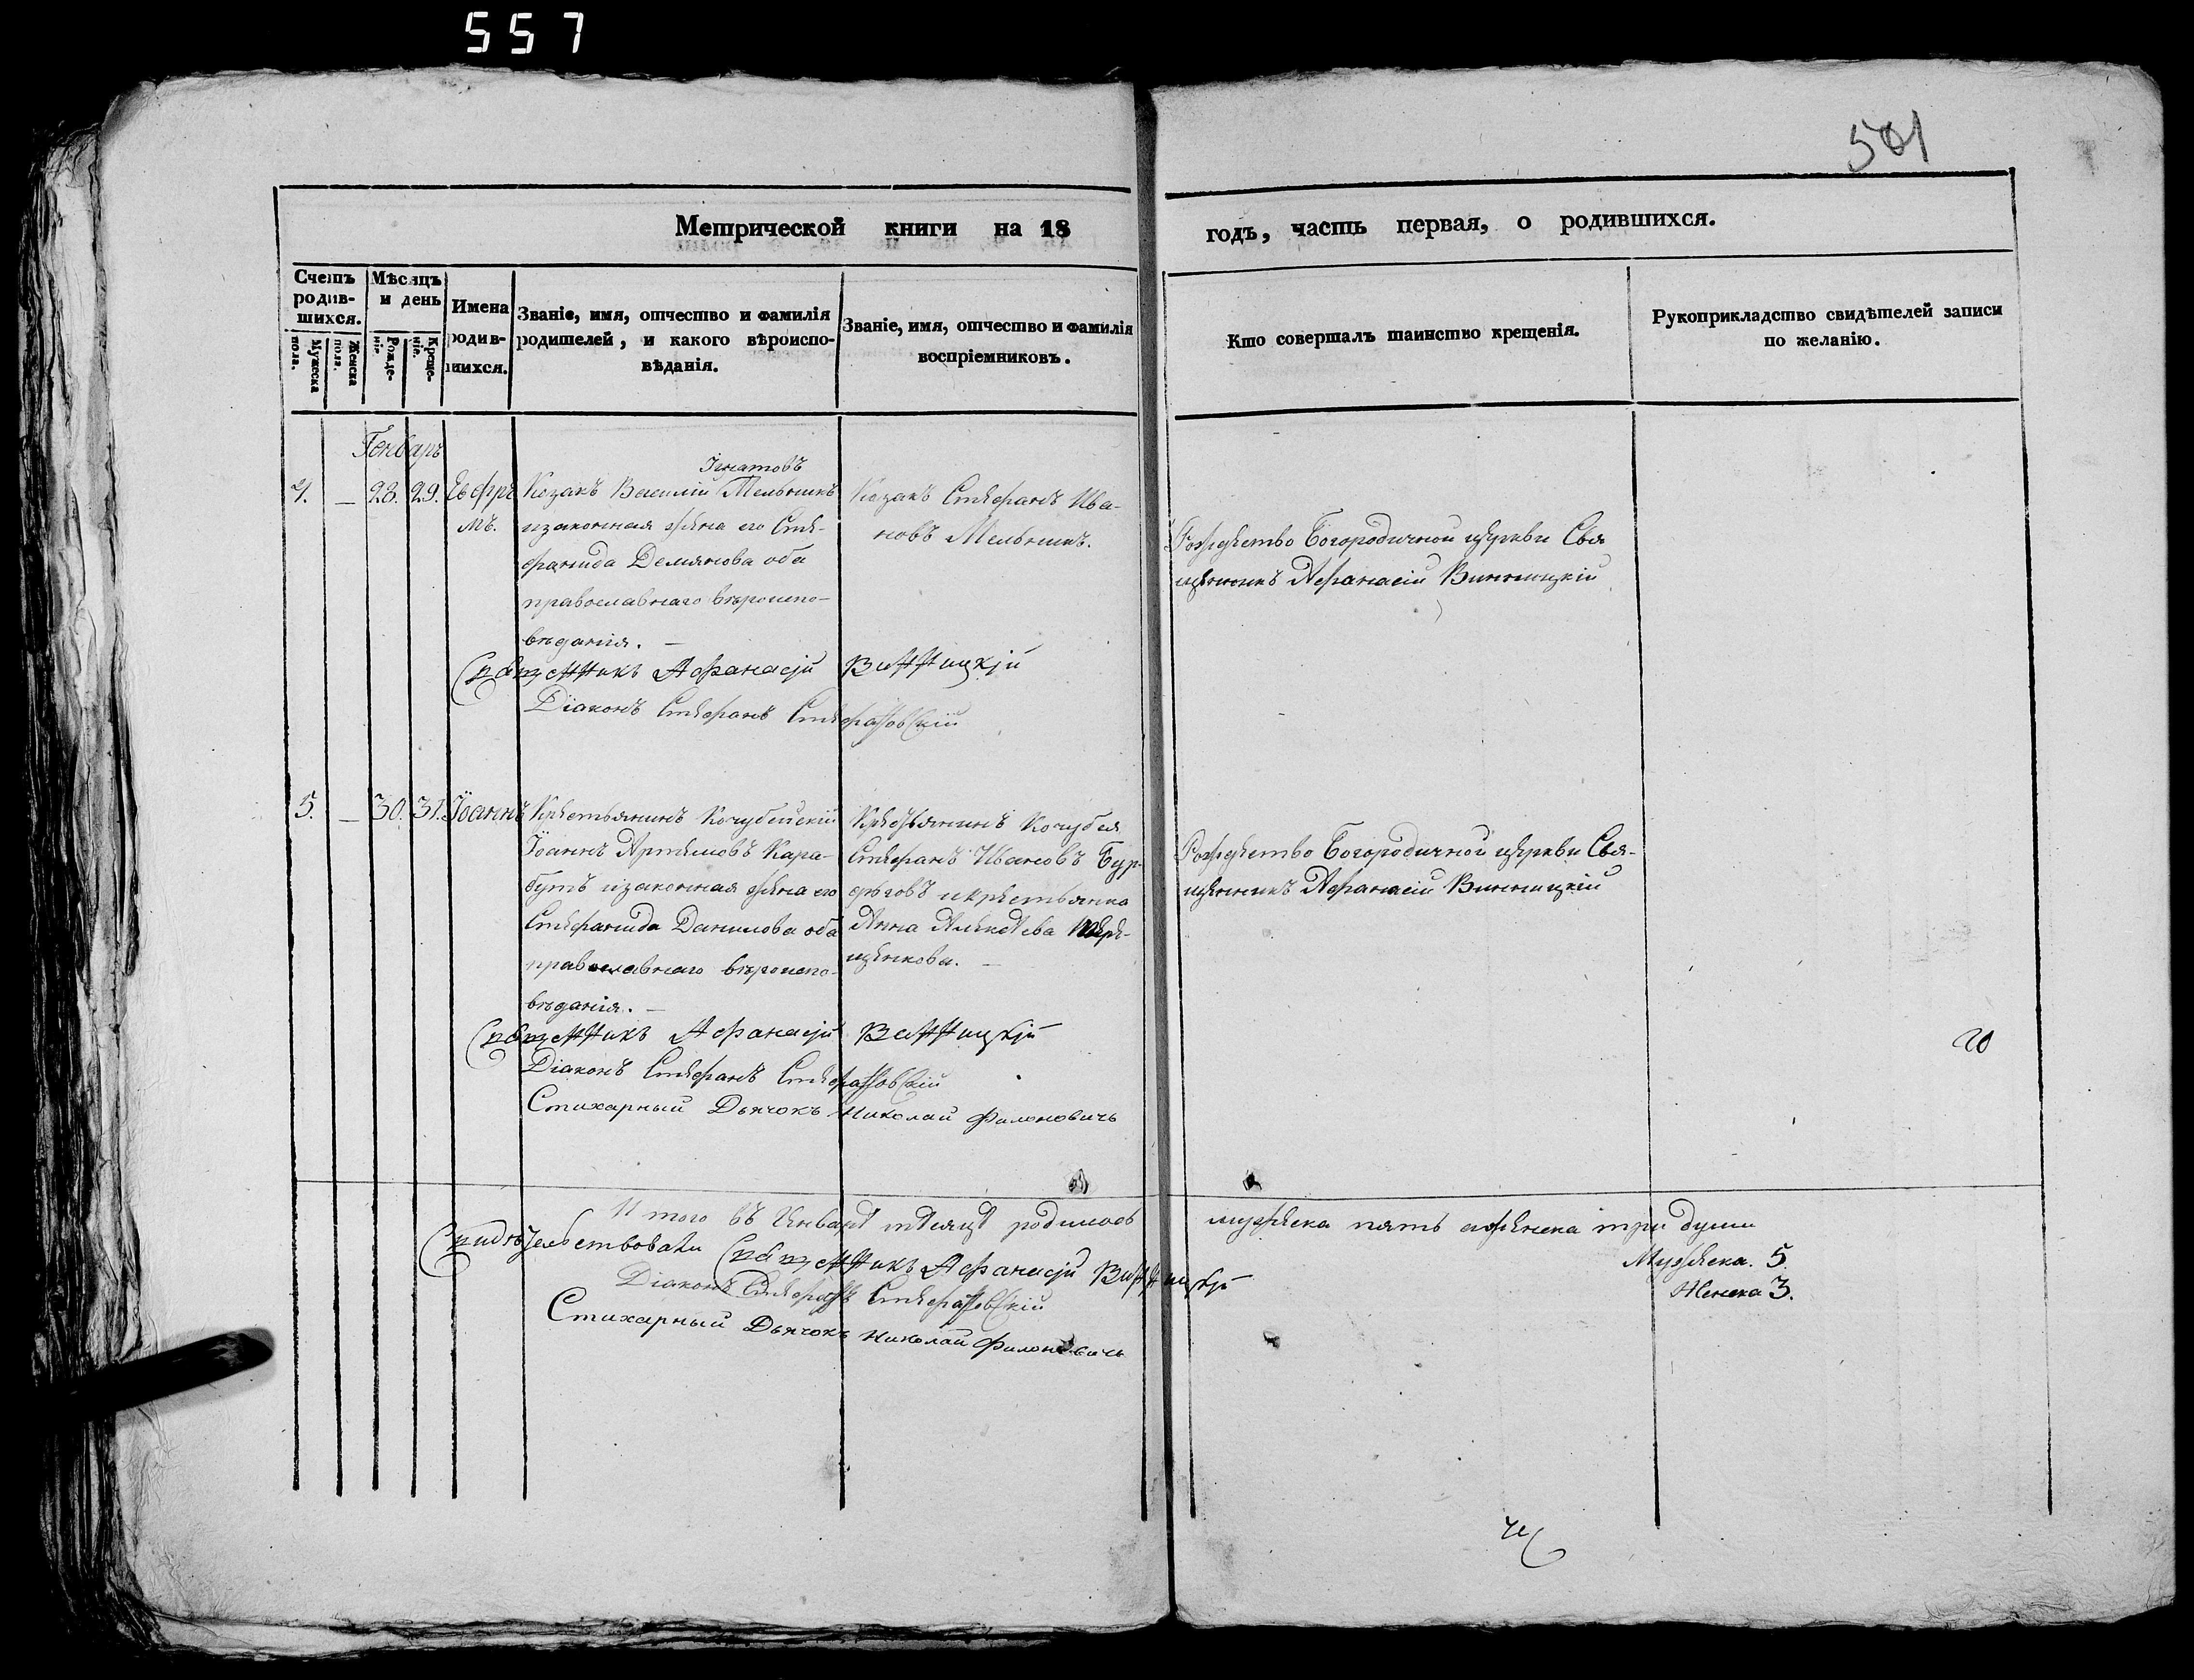 557
501
Метрической книги на 18 годъ, часть первая, о родившихся.
Счетъ родившихся.
Мужеска пола.
Женска пола.
Мѣсяцъ и день
Рожденіе.
Крещеніе.
Имена родившихся.
Званіе, имя, отчество и фамилія родителей, и какого вѣроисповѣданія.
Званіе, имя, отчество и фамилія воспріемниковъ.
Кто совершалъ таинство крещенія.
Рукоприкладство свидѣтелей записи по желанію.
Генварь
4. — 28. 29. Ефре
мъ.
Игнатовъ
Козакъ Василій Мельникъ
изаконная жена его Сте-
фанида Демянова оба
православнаго вѣроиспо-
вѣданія. —
Козакъ Стефанъ Ива-
новъ Мельникъ.
Рождество Богородичной церкви Свя
щенникъ Афанасій Винницкій
Священникъ Афанасій Винницкій
Діаконъ Стефанъ Стефановскій
5. — 30. 31. Іоаннъ
Крестьянинъ Кочубейскій
Іоаннъ Артемовъ Кара-
бутъ изаконная жена его
Стефанида Данилова оба
православнаго вѣроиспо-
вѣданія. —
Крестьянинъ Кочубея
Стефанъ Ивановъ Бур-
и крестьянка
Анна Алексѣева
щенкова. —
Рождество Богородичной церкви Свя-
щенникъ Афанасій Винницкій
Священникъ Афанасій Винницкій
Діаконъ Стефанъ Стефановскій
Стихарный Дьячокъ Николай Филоновичь
20
Итого въ Генварѣ мѣсяцѣ родилось мужеска пять аженска три души
Мужеска. 5.
Женска 3.
Свидѣтельствовали Священникъ Афанасій Винницкій
Діаконъ Стефанъ Стефановскій
Стихарный Дьячокъ Николай Филоновичь